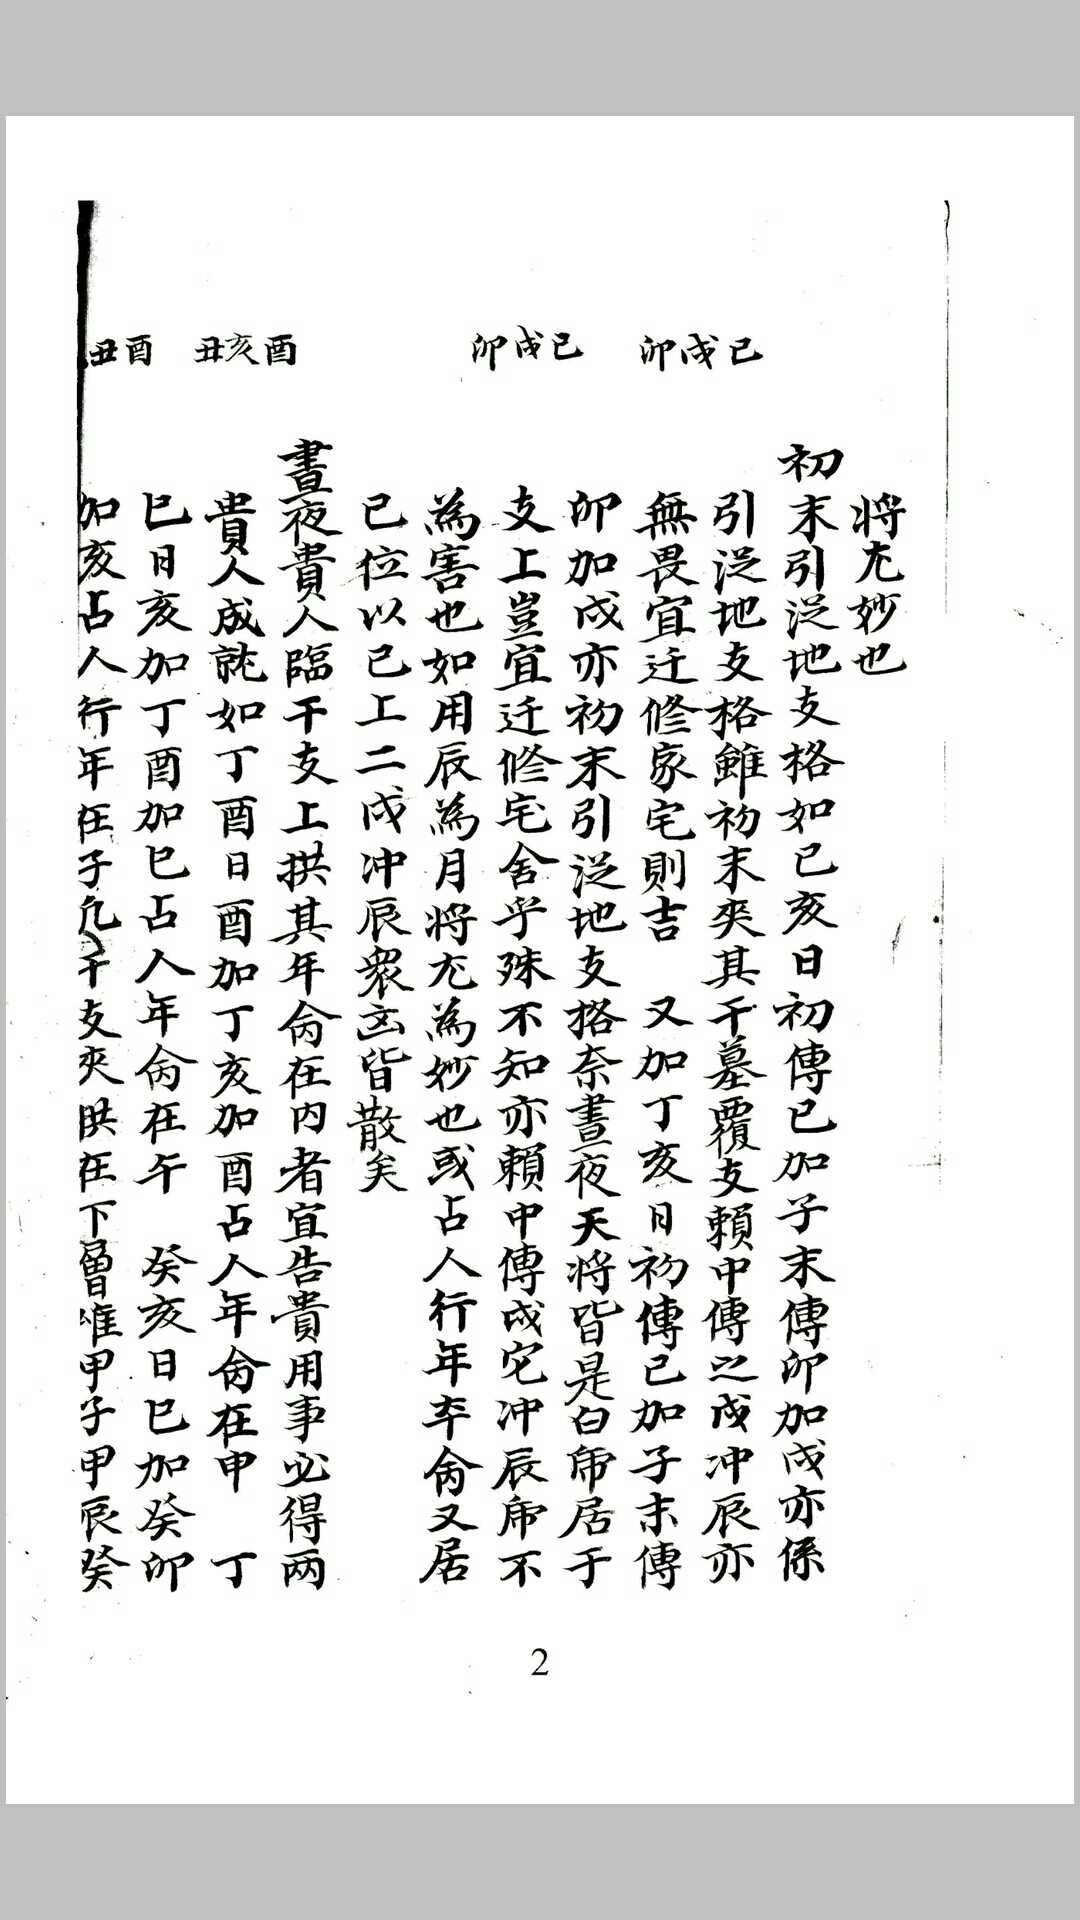 巳戌卯
巳戌卯
酉亥丑
酉丑
将尤妙也
初末引從地支格如己亥日初傳巳加子末傳卯加戌亦係
引從地支格雖初末夾其干墓覆支賴中傳之戌冲辰亦
無畏宜迁修家宅則吉　又加丁亥日初傳巳加子末傳
卯加戌亦初末引從地支格奈晝夜天将皆是白虎居于
支上豈宜迁修宅舍乎殊不知亦賴中傳戌它冲辰虎不
為害也如用辰為月将尤為妙也或占人行年本命又居
巳位以巳上二戌冲辰衆凶皆散矣
晝夜貴人臨干支上拱其年命在内者宜告貴用事必得两
貴人成就如丁酉日酉加丁亥加酉占人年命在申　丁
巳日亥加丁酉加巳占人年命在午　癸亥日巳加癸卯
加亥占人行年在子凢干支夾拱在下層惟甲子甲辰癸
2